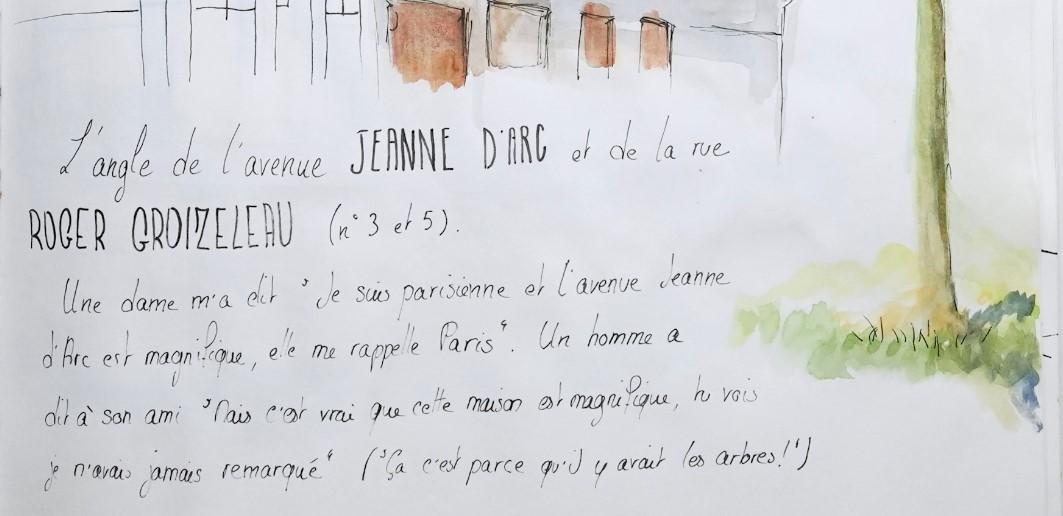 L'angle de l'avenue JEANNE D'ARC et de la rue
ROGER GROIZELEAU (n° 3 et 5).
Une dame m'a dit "Je suis parisienne et l'avenue Jeanne
d'Arc est magnifique, elle me rappelle Paris". Un homme a
dit à son ami "Mais c'est vrai que cette maison est magnifique, tu vois
je n'avais jamais remarqué" ("Ça c'est parce qu'il y avait les arbres!")